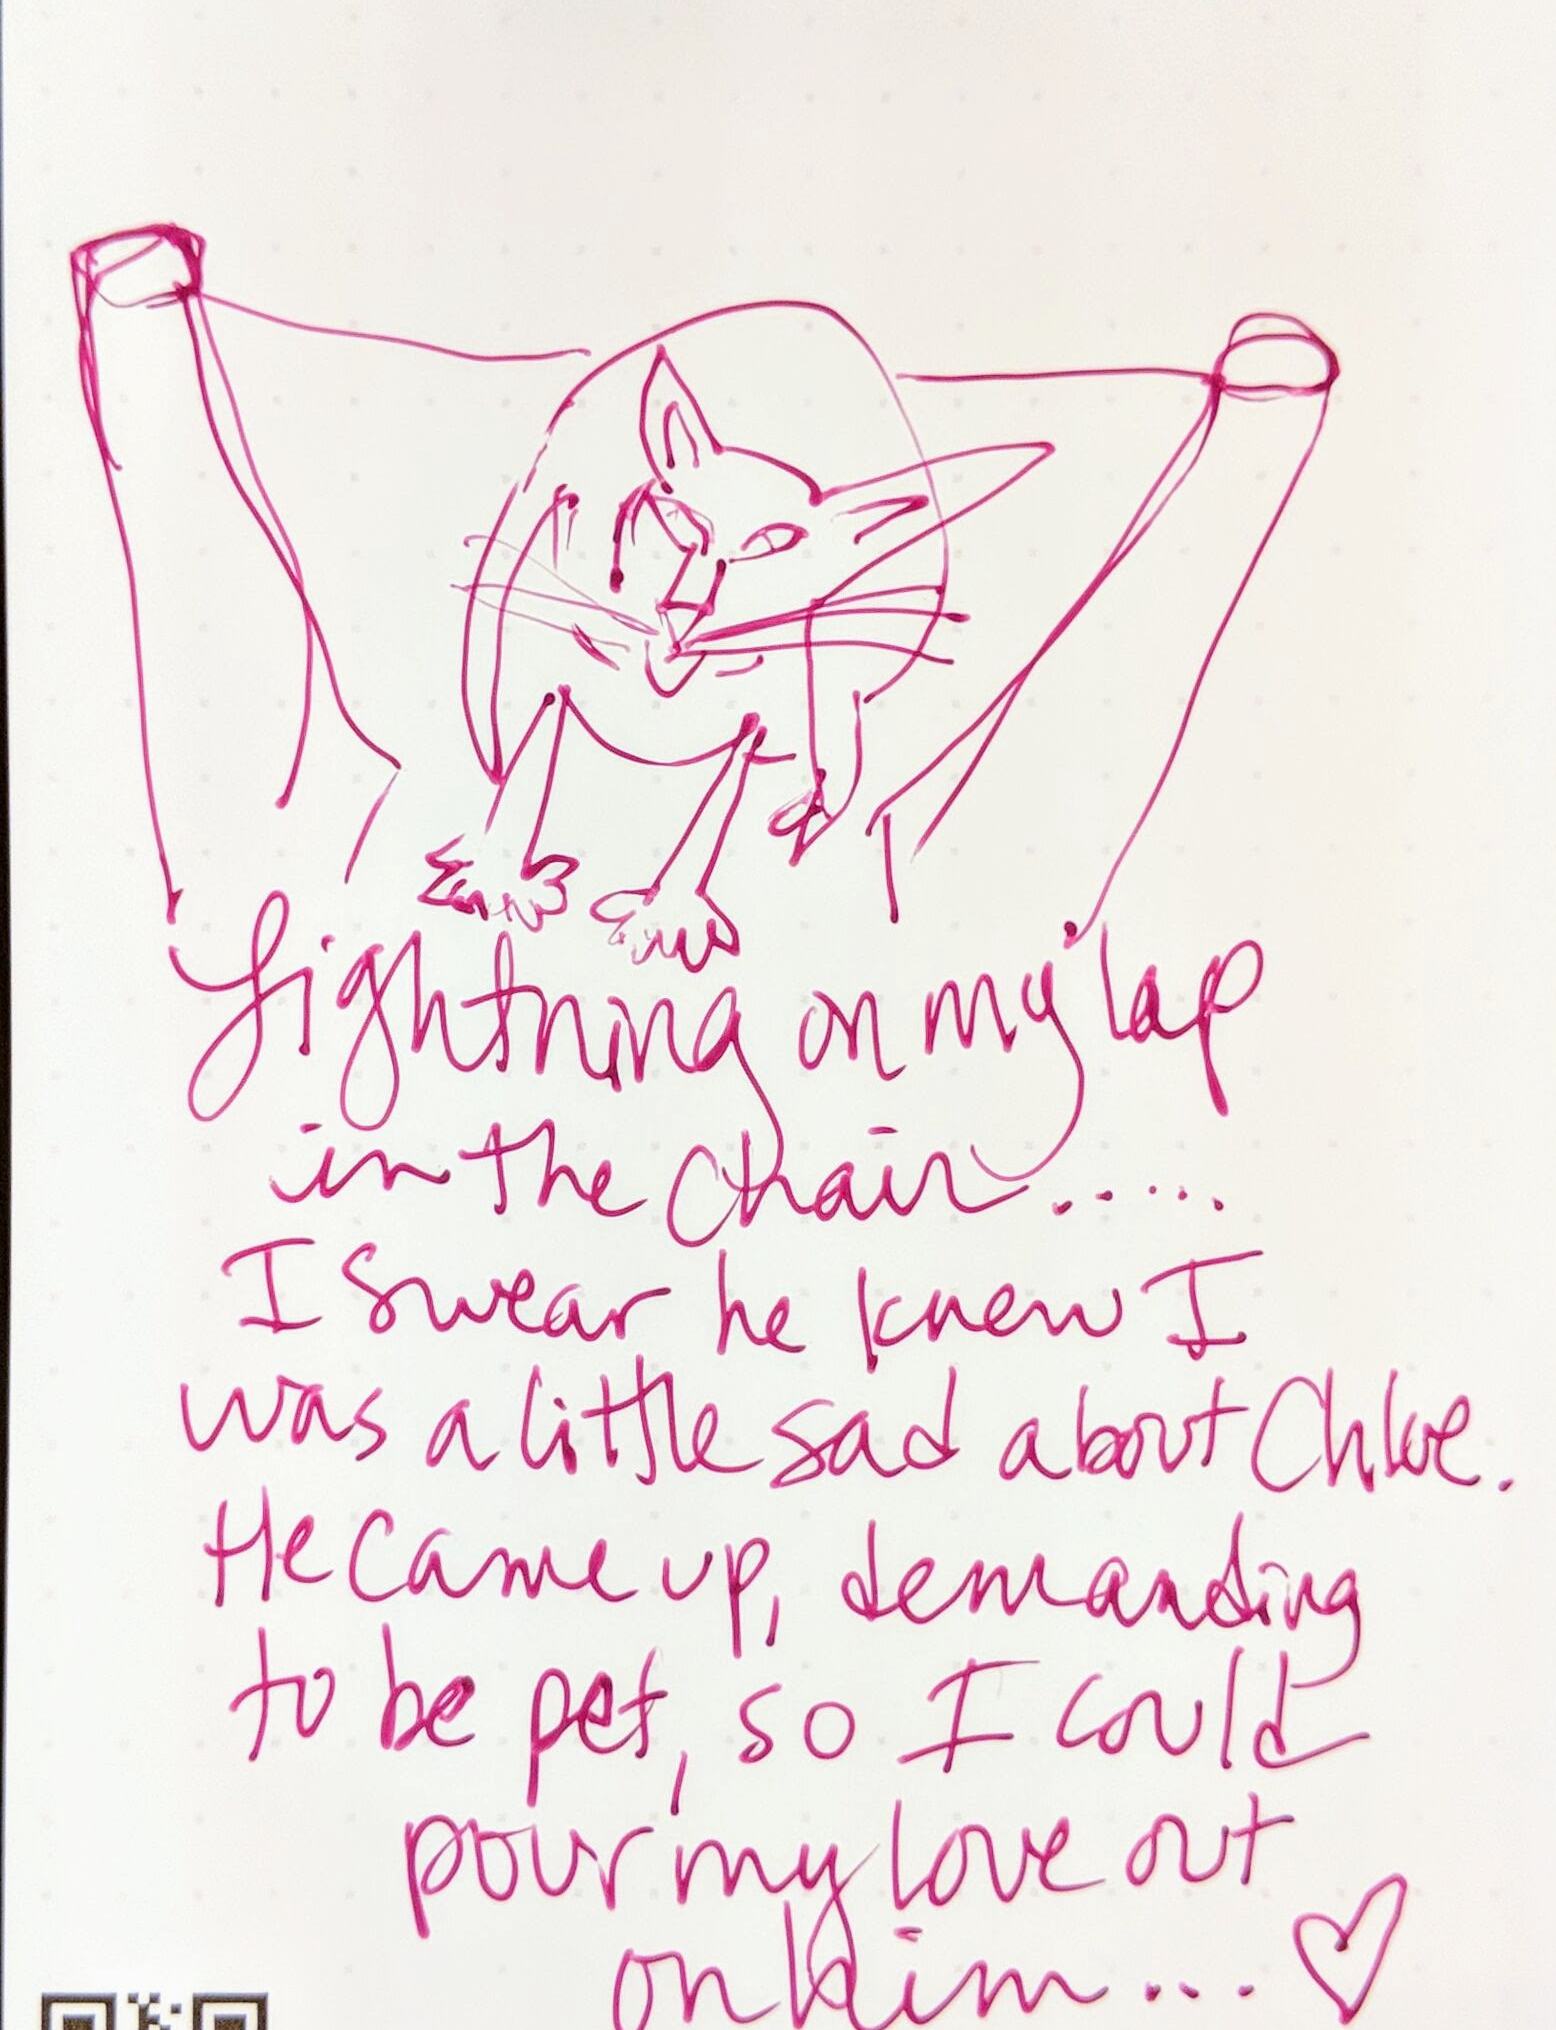 Lightning on my lap
in the chair.....
I swear he knew I
was a little sad about Chloe.
He came up, demanding
to be pet, so I could
pour my love out
on him...